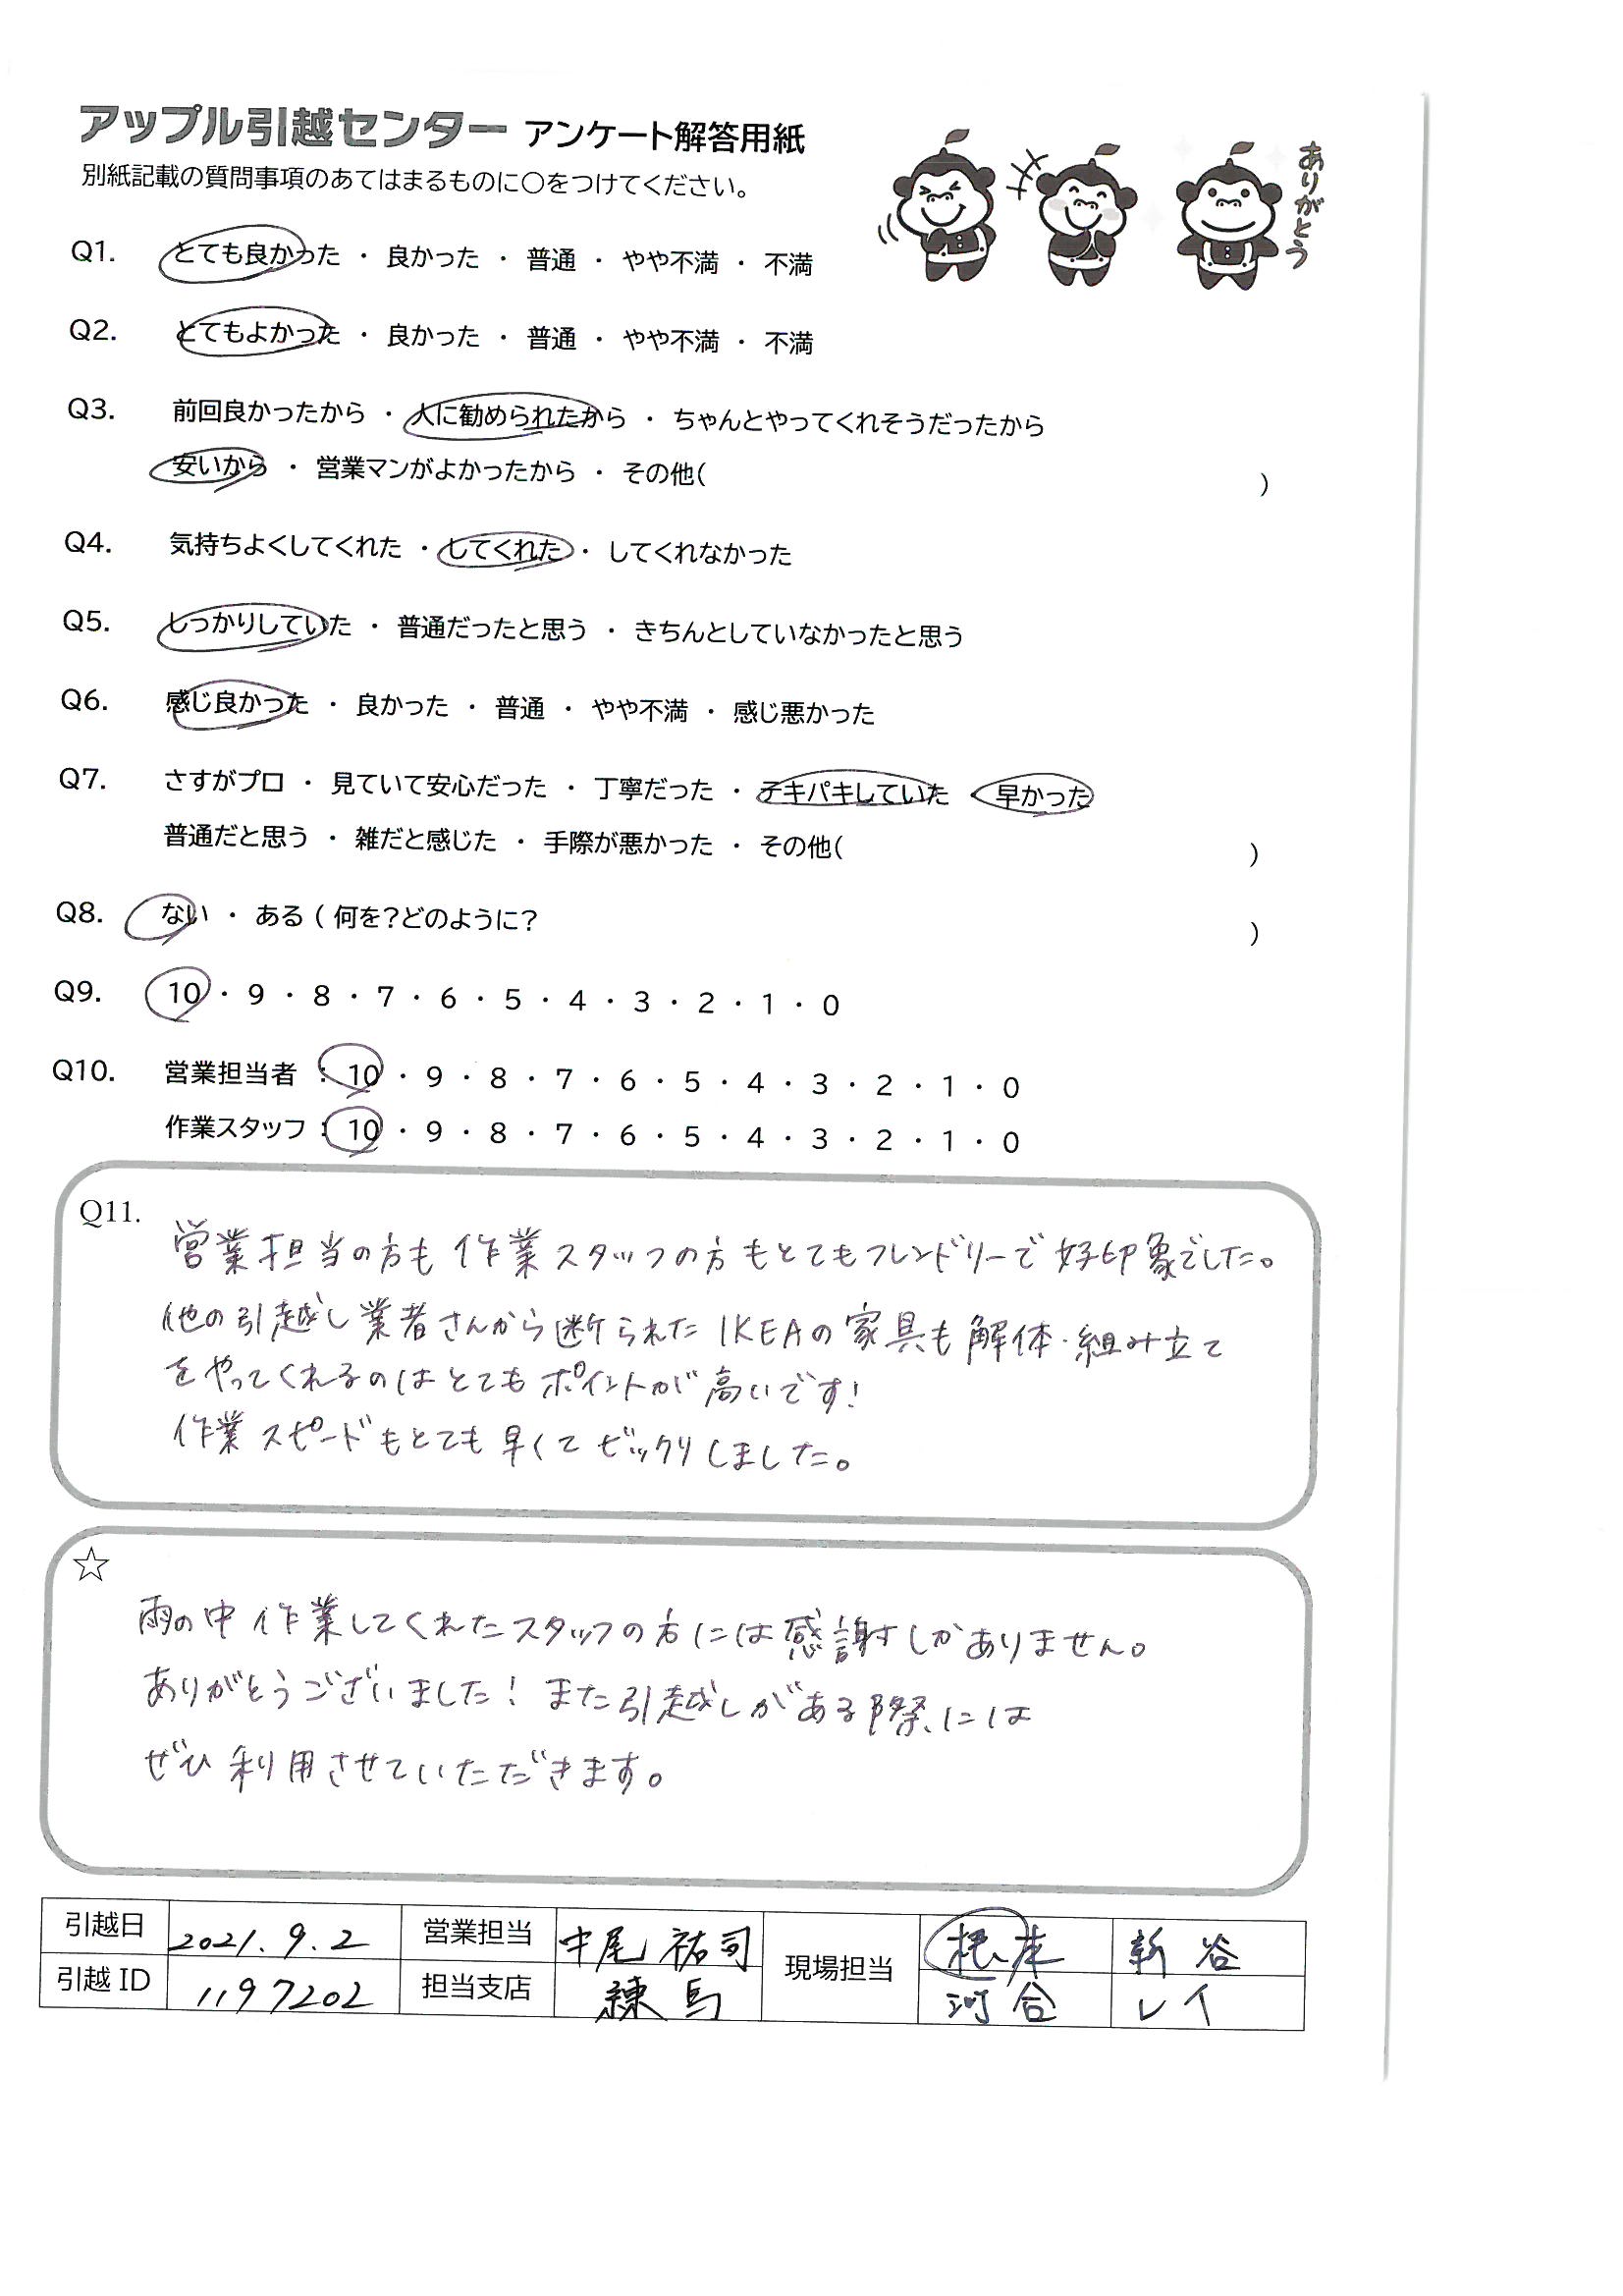 アップル引越センター アンケート解答用紙
別紙記載の質問事項のあてはまるものに〇をつけてください。
ありがとう
Q1. とても良かった ・ 良かった ・ 普通 ・ やや不満 ・ 不満
Q2. とてもよかった ・ 良かった ・ 普通 ・ やや不満 ・ 不満
Q3. 前回良かったから ・ 人に勧められたから ・ ちゃんとやってくれそうだったから
安いから ・ 営業マンがよかったから ・ その他( )
Q4. 気持ちよくしてくれた ・ してくれた ・ してくれなかった
Q5. しっかりしていた ・ 普通だったと思う ・ きちんとしていなかったと思う
Q6. 感じ良かった ・ 良かった ・ 普通 ・ やや不満 ・ 感じ悪かった
Q7. さすがプロ ・ 見ていて安心だった ・ 丁寧だった ・ テキパキしていた ・ 早かった
普通だと思う ・ 雑だと感じた ・ 手際が悪かった ・ その他( )
Q8. ない ・ ある ( 何を?どのように? )
Q9. 10 ・ 9 ・ 8 ・ 7 ・ 6 ・ 5 ・ 4 ・ 3 ・ 2 ・ 1 ・ 0
Q10. 営業担当者 : 10 ・ 9 ・ 8 ・ 7 ・ 6 ・ 5 ・ 4 ・ 3 ・ 2 ・ 1 ・ 0
作業スタッフ : 10 ・ 9 ・ 8 ・ 7 ・ 6 ・ 5 ・ 4 ・ 3 ・ 2 ・ 1 ・ 0
Q11.
営業担当の方も作業スタッフの方もとてもフレンドリーで好印象でした。
他の引越し業者さんから断られたIKEAの家具も解体・組み立て
をやってくれるのはとてもポイントが高いです!
作業スピードもとても早くてビックリしました。
☆
雨の中作業してくれたスタッフの方には感謝しかありません。
ありがとうございました! また引越しがある際には
ぜひ利用させていただきます。
引越日 2021.9.2 営業担当 中尾 祐司 現場担当 根本 新谷
引越 ID 1197202 担当支店 練馬 河合 レイ